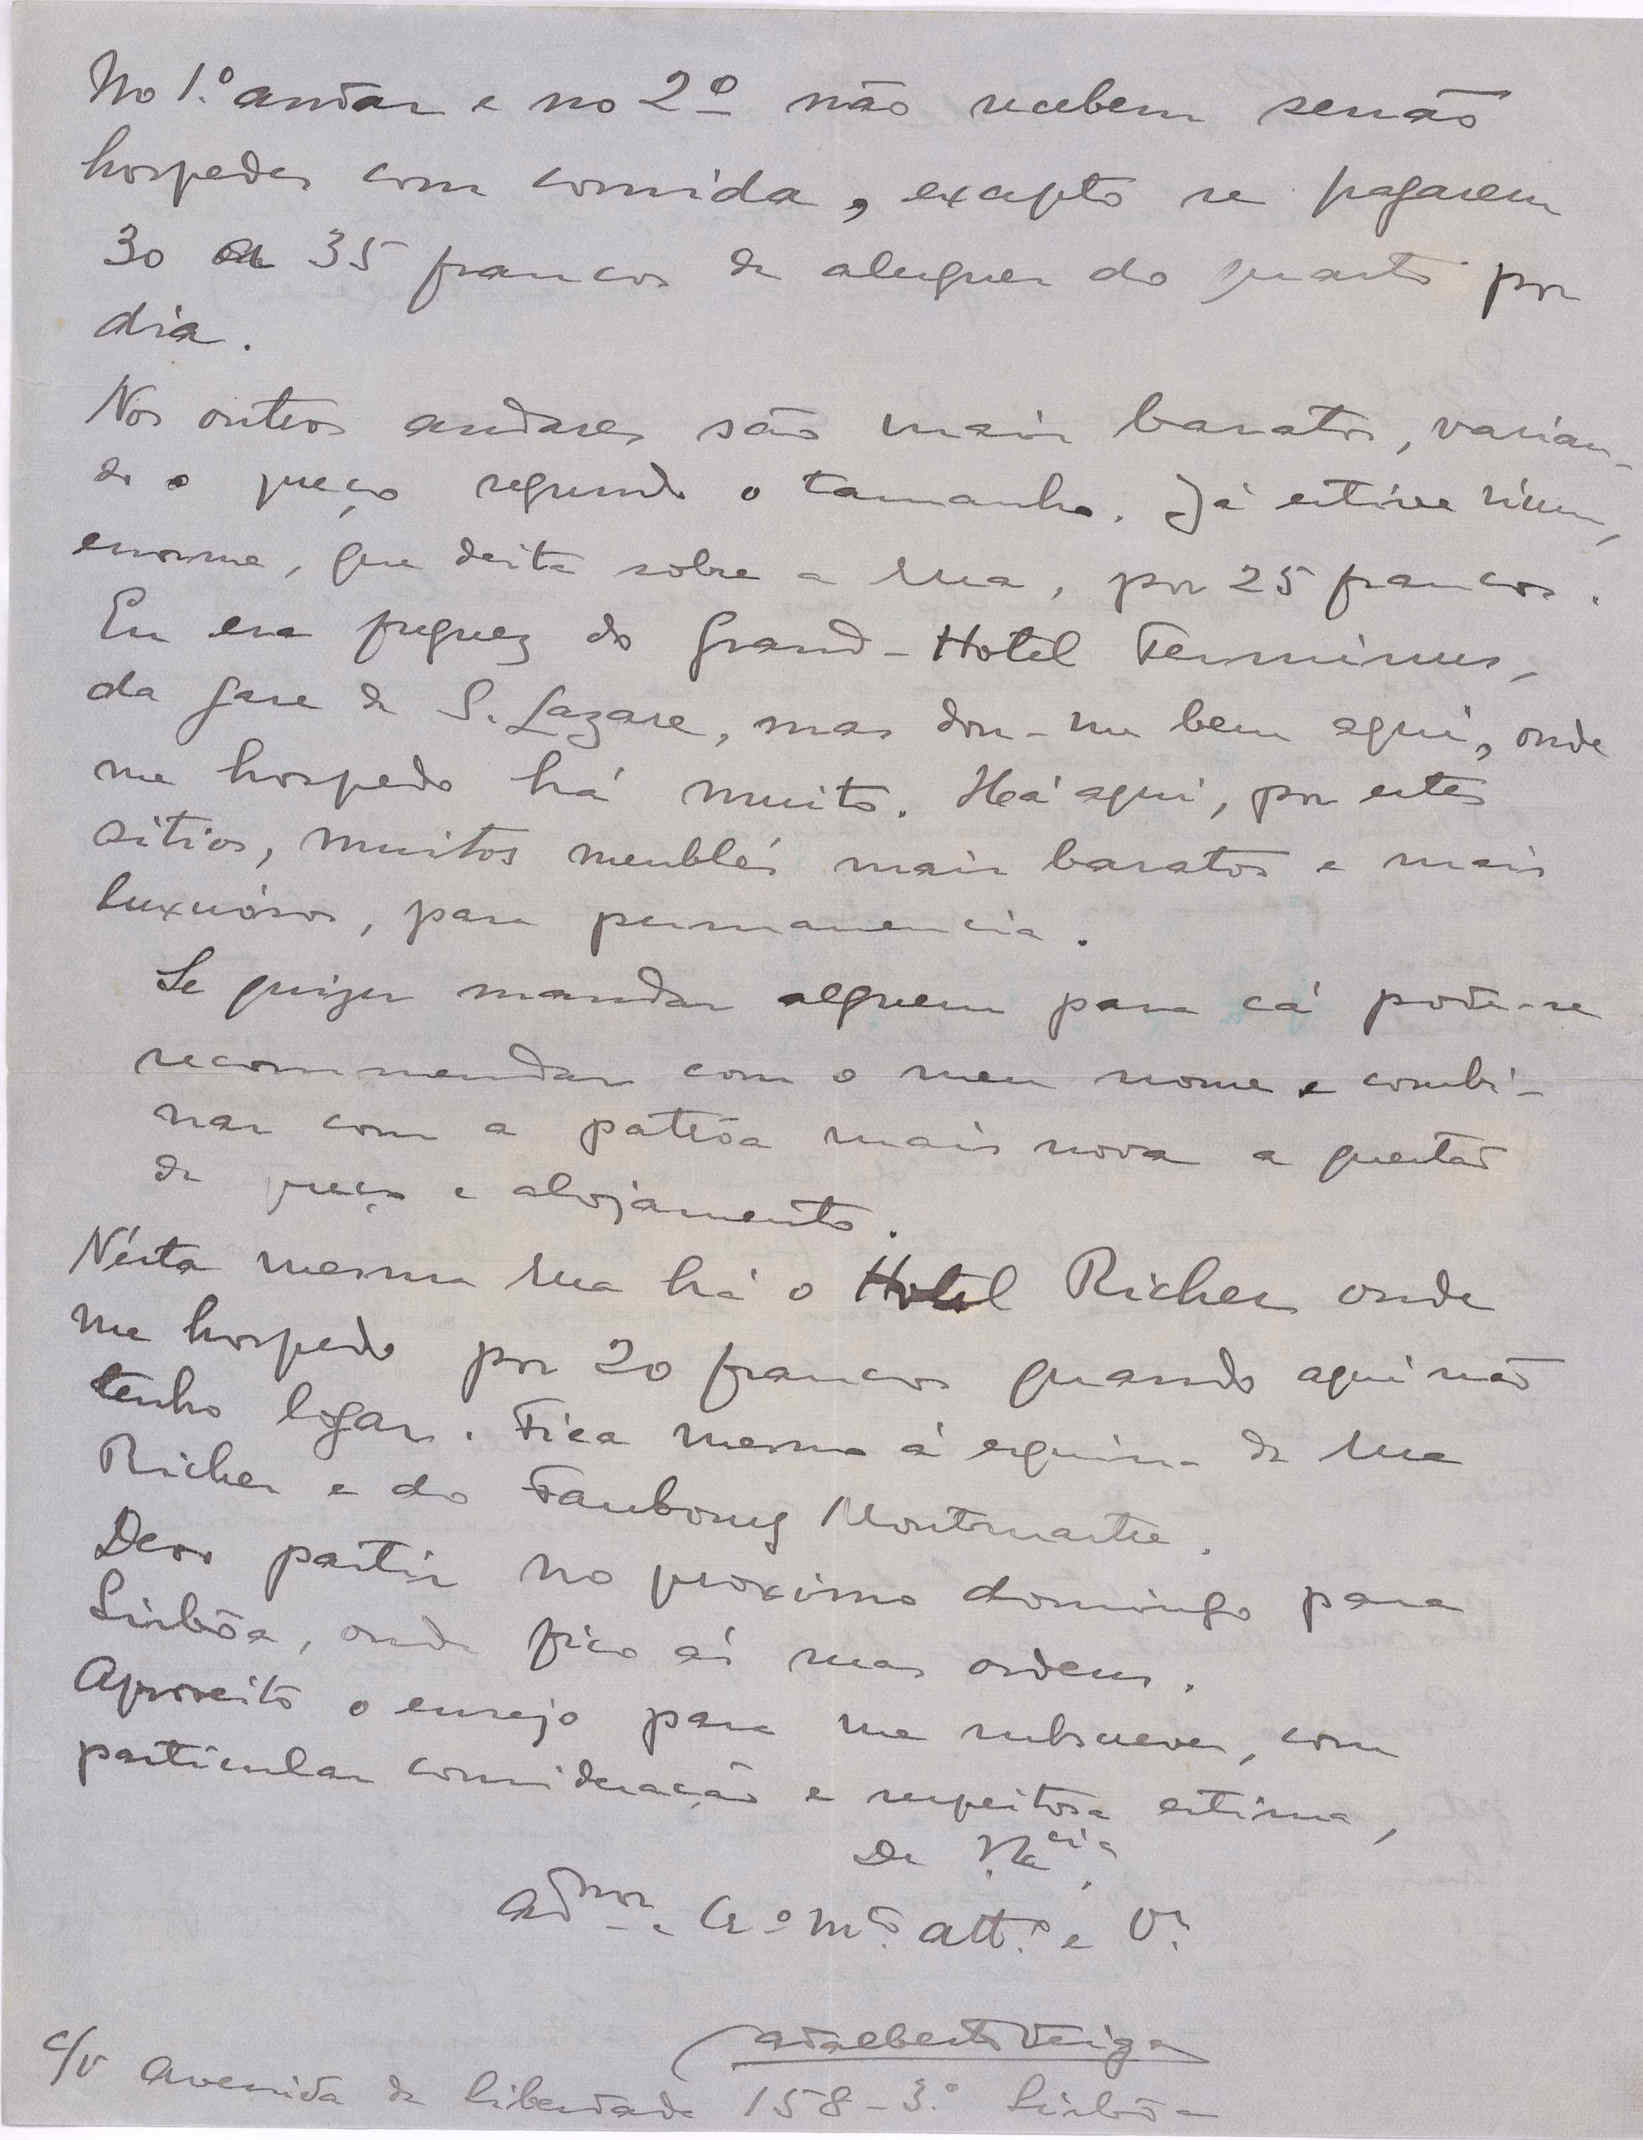 No 1.º andar e no 2º não recebem senão
hospedes com comida, excepto se pagarem
30 ou 35 francos de aluguer do quarto por
dia.
Nos outros andares são mais baratos, varian-
do o preço segundo o tamanho. Já estive n'um,
enorme, que deita sobre a rua, por 25 francos.
Eu era freguez do Grand-Hotel Terminus,
da gare de S. Lazare, mas dou-me bem aqui, onde
me hospedo há muito. Há aqui, por estes
sitios, muitos meublés mais baratos e mais
luxuósos, para permanencia.
Se quizer mandar alguem para cá pode-se
recommendar com o meu nome e combi-
nar com a patrôa mais nova a questão
de preço e alojamento.
Nésta mesma rua há o Hotel Richer onde
me hospedo por 20 francos quando aqui não
tenho logar. Fica mesmo á esquina da rua
Richer e do Faubourg Montmartre.
Devo partir no proximo domingo para
Lisbôa, onde fico ás suas ordens.
Aproveito o ensejo para me subscrever, com
particular consideração e respeitosa estima,
De V. Ex.cia
Ad.mor Cr.º m.to att.º e V.or
Adalberto Veiga
c/v Avenida da Liberdade 158-3.º Lisbôa